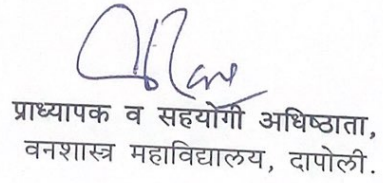 प्राध्यापक व सहयोगी अधिष्ठाता,
वनशास्त्र महाविद्यालय, दापोली.